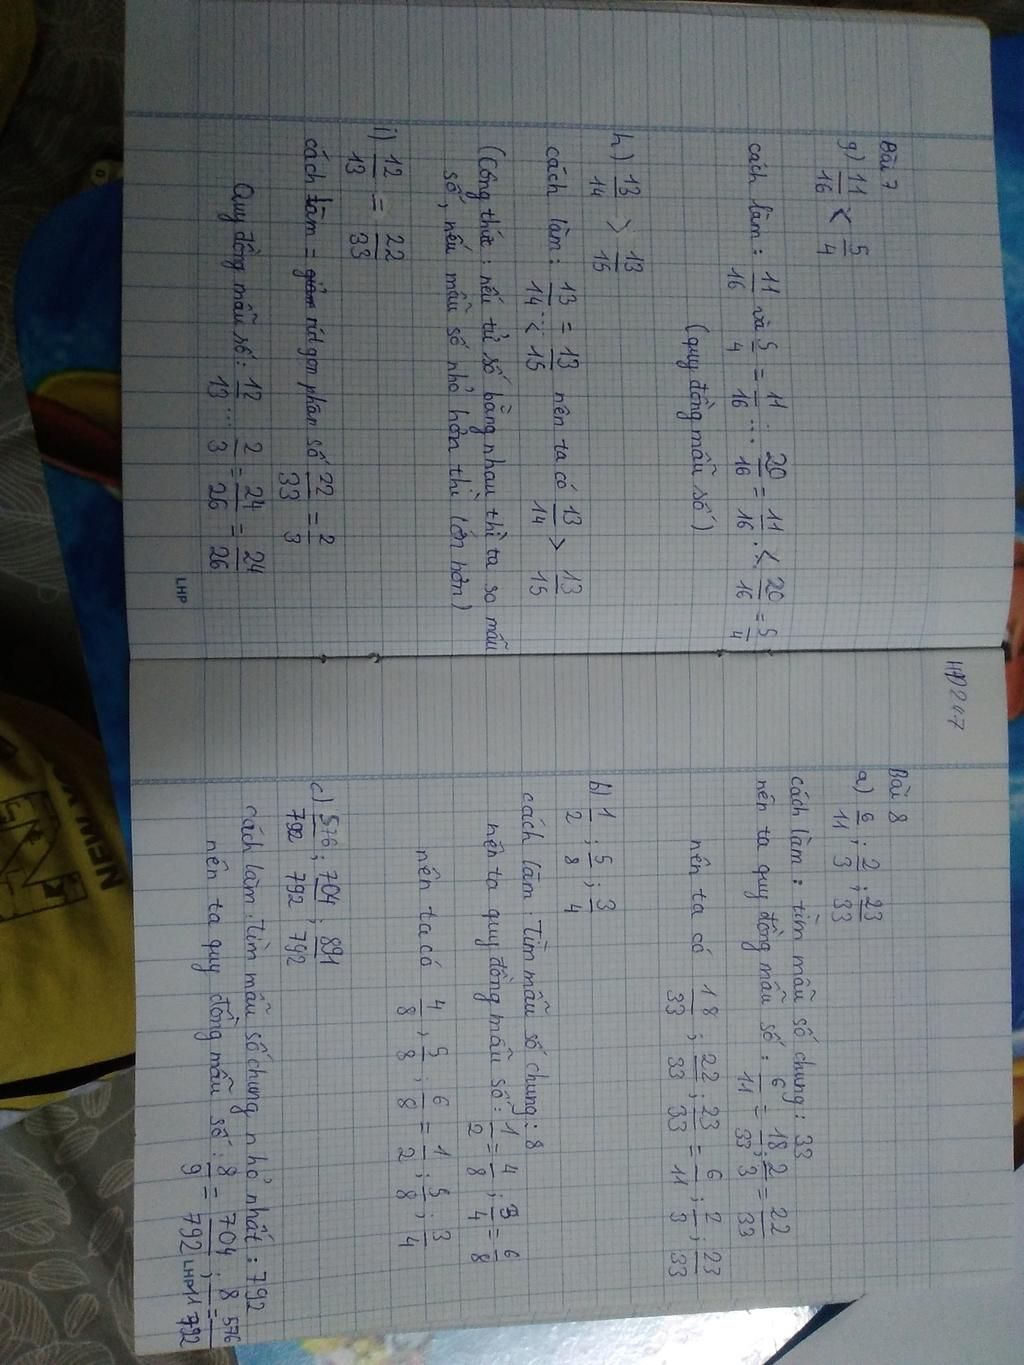 Bài 7
g) 11/16 < 5/4
cách làm: 11/16 và 5/4 = 11/16 ... 20/16 = 11/16 < 20/16 = 5/4
(quy đồng mẫu số)
h) 13/14 > 13/15
cách làm: 13/14 ... < 13/15 nên ta có 13/14 > 13/15
(Công thức: nếu tử số bằng nhau thì ta so mẫu
số, nếu mẫu số nhỏ hơn thì lớn hơn)
i) 12/13 = 22/33
cách làm = rút gọn phân số 22/33 = 2/3
Quy đồng mẫu số: 12/13 ... 2/3 = 24/26 = 24/26
LHP
HĐ 24.7
Bài 8
a) 6/11; 2/3; 23/33
cách làm: tìm mẫu số chung: 33
nên ta quy đồng mẫu số: 6/11 = 18/33; 2/3 = 22/33
nên ta có 18/33; 22/33; 23/33 = 6/11; 2/3; 23/33
b) 1/2; 5/8; 3/4
cách làm: Tìm mẫu số chung: 8
nên ta quy đồng mẫu số: 1/2 = 4/8; 3/4 = 6/8
nên ta có 4/8; 5/8; 6/8 = 1/2; 5/8; 3/4
c) 576/792; 704/792; 891/792
cách làm: Tìm mẫu số chung nhỏ nhất: 792
nên ta quy đồng mẫu số: 8/9 = 704/792; 8/11 = 576/792
LHP